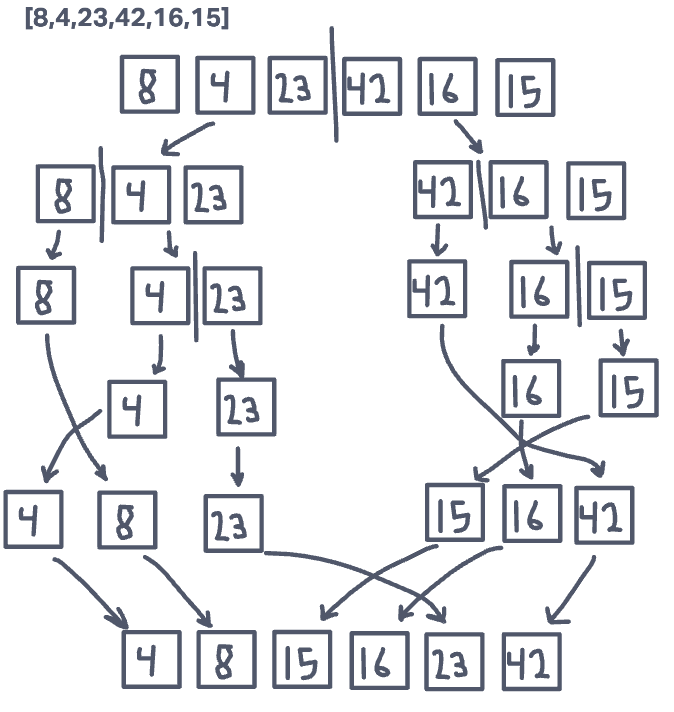 [8,4,23,42,16,15]
8 4 23 42 16 15
8 4 23 42 16 15
8 4 23 42 16 15
4 23 16 15
4 8 23 15 16 42
4 8 15 16 23 42